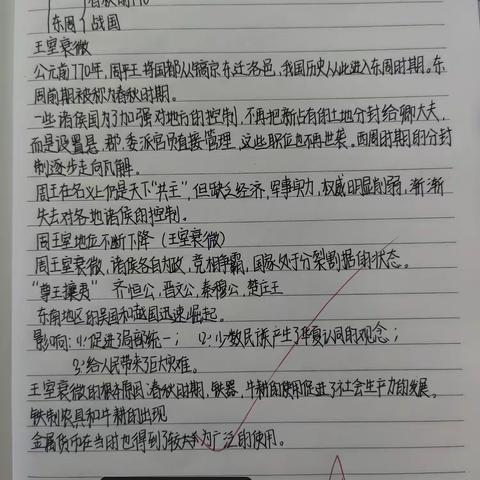 春秋前770
东周 战国
王室衰微
公元前770年,周平王将国都从镐京东迁洛邑,我国历史从此进入东周时期。东
周前期被称为春秋时期。
一些诸侯国为了加强对地方的控制,不再把新占有的土地分封给卿大夫,
而是设置县、郡,委派官员直接管理,这些职位也不再世袭。西周时期的分封
制逐步走向瓦解。
周王在名义上仍是天下“共主”,但缺乏经济,军事实力,权威明显削弱,渐渐
失去对各地诸侯的控制。
周王室地位不断下降(王室衰微)
周王室衰微,诸侯各自为政,竞相争霸,国家处于分裂割据的状态。
“尊王攘夷” 齐桓公,晋文公,秦穆公,楚庄王
东南地区的吴国和越国迅速崛起。
影响:(1)促进了局部统一; (2)少数民族产生了华夏认同的观念;
(3)给人民带来了巨大灾难。
王室衰微的根本原因:春秋时期,铁器,牛耕的使用促进了社会生产力的发展。
铁制农具和牛耕的出现
金属货币在当时也得到了较为广泛的使用。